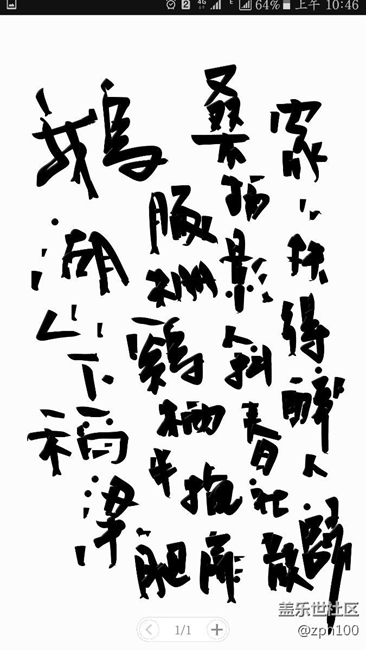 64% 上午 10:46
鵝湖山下稻梁肥
豚栅鷄栖半掩扉
桑柘影斜春社散
家々扶得醉人歸
1/1
盖乐世社区
@zph100